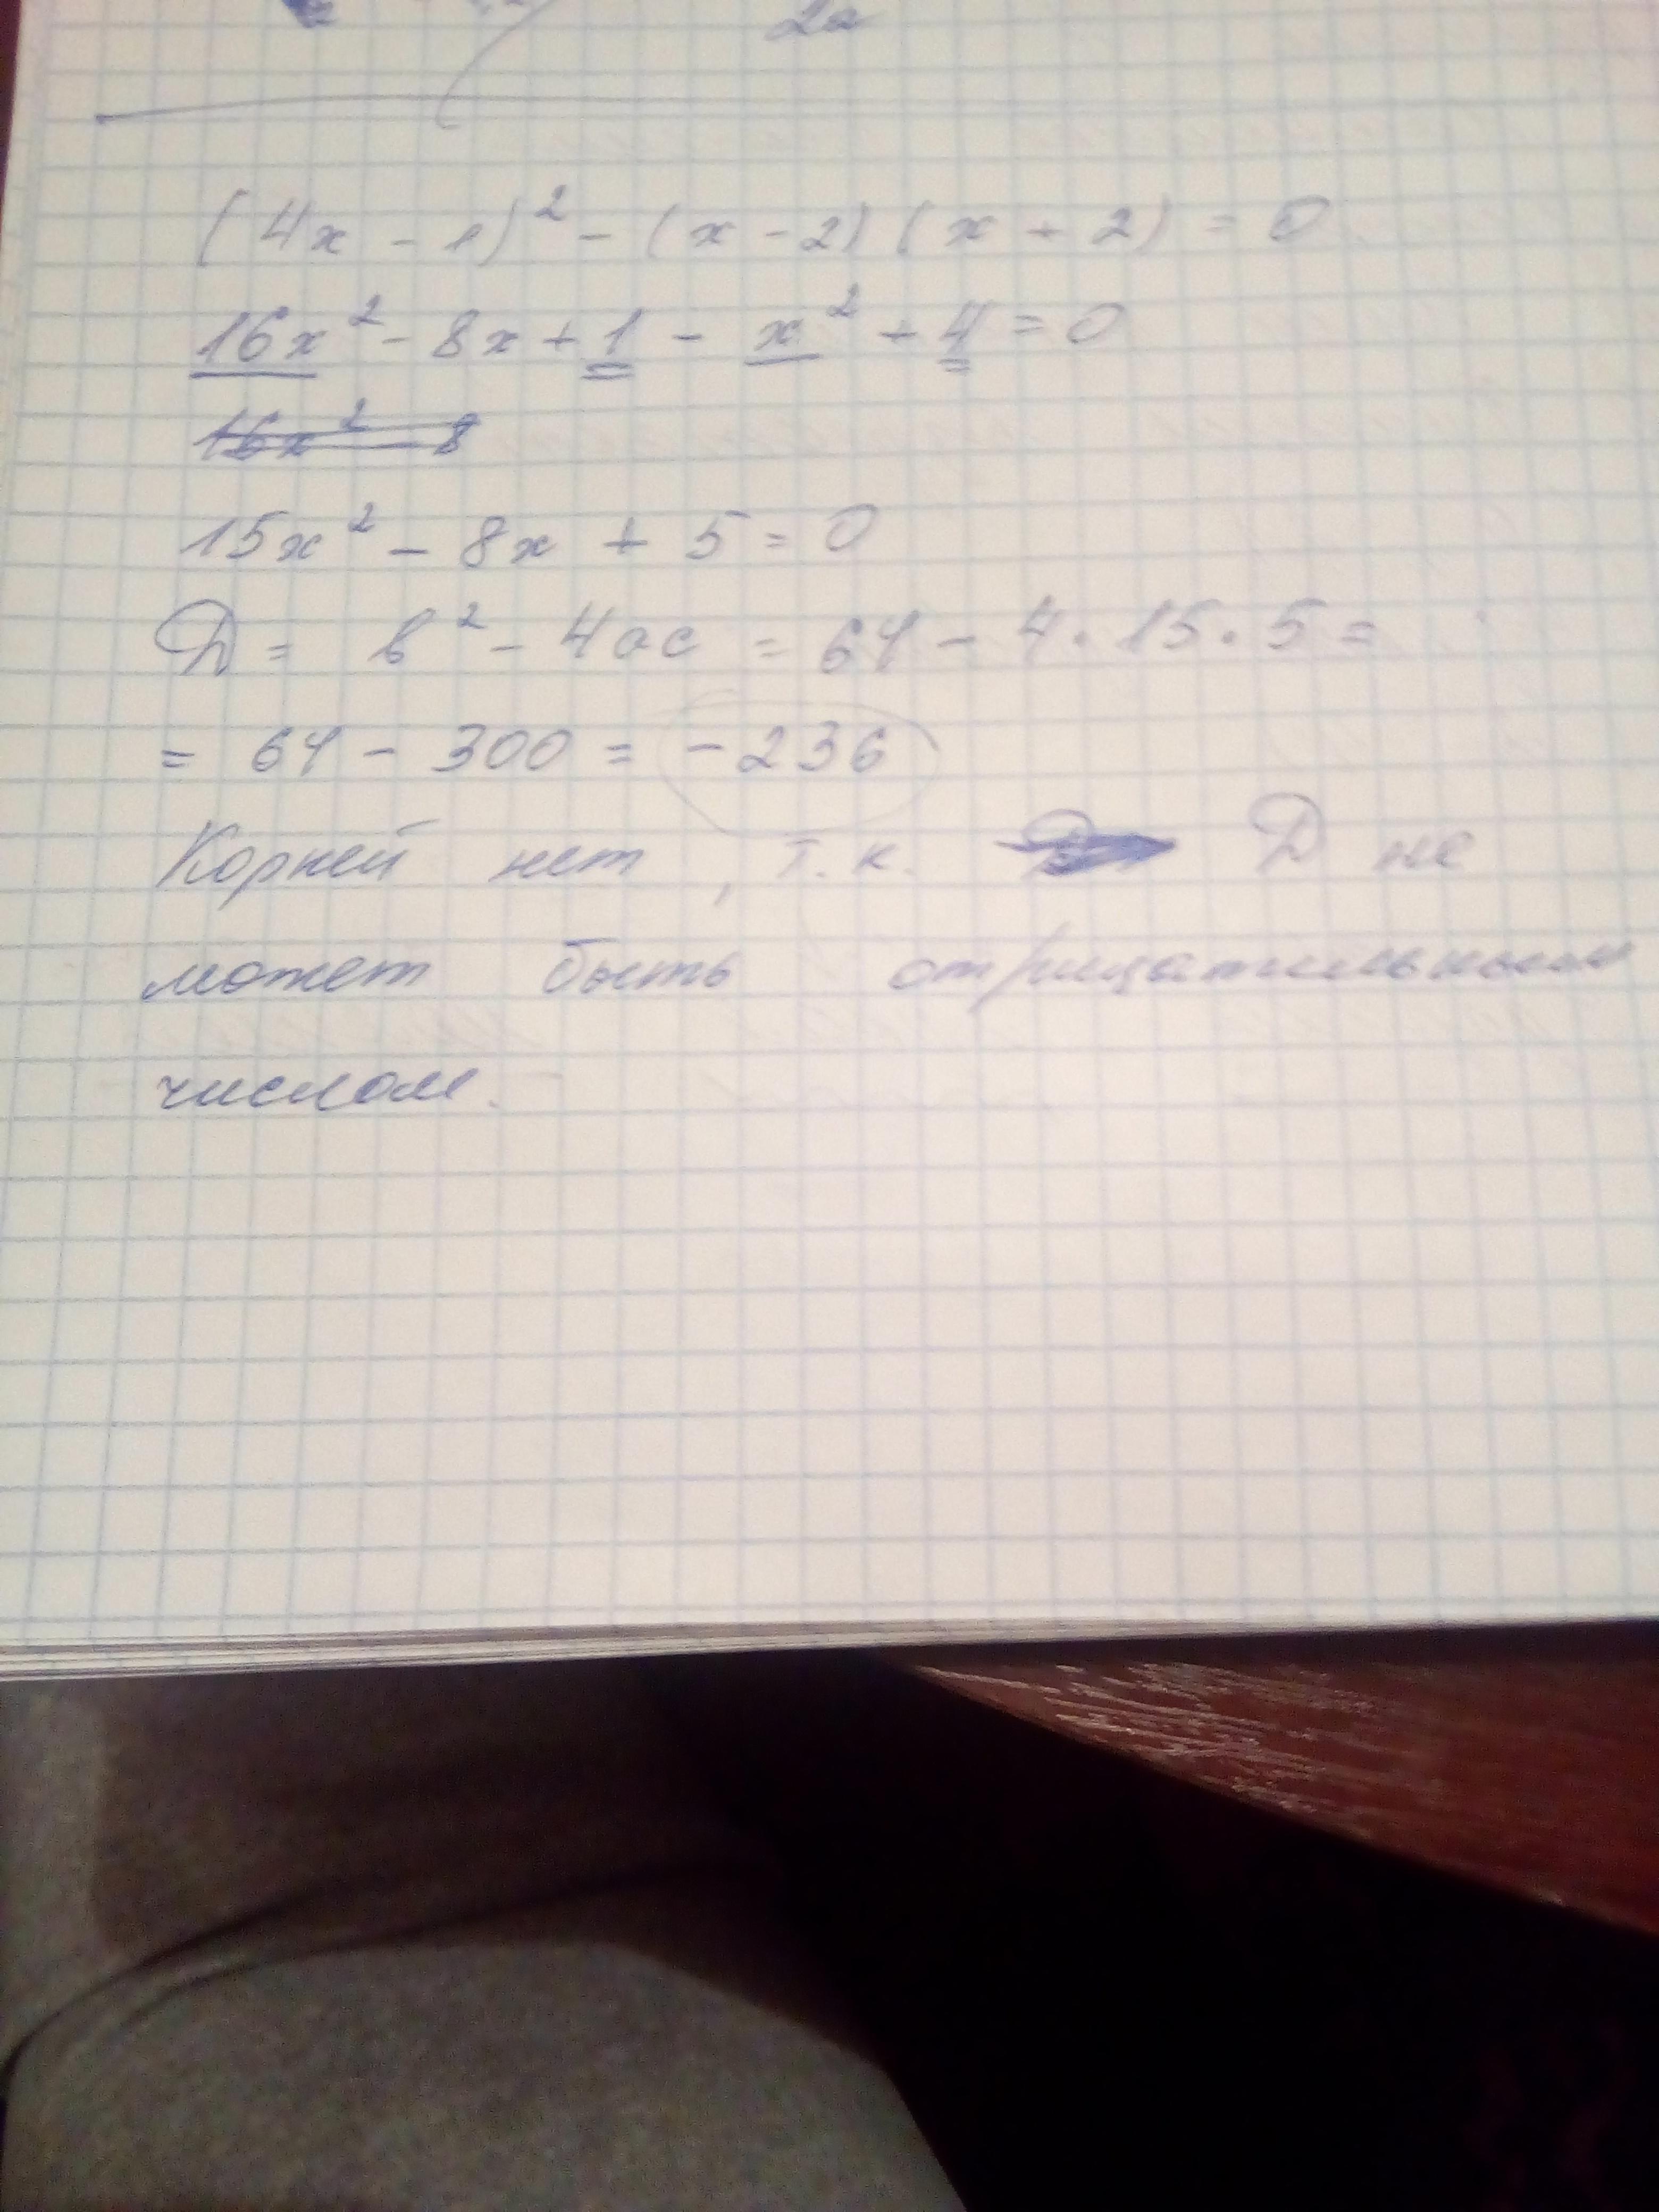 2a
(4x - 1)² - (x - 2)(x + 2) = 0
16x² - 8x + 1 - x² + 4 = 0
16x² - 8
15x² - 8x + 5 = 0
D = b² - 4ac = 64 - 4 · 15 · 5 =
= 64 - 300 = -236
Корней нет, т.к. D не
может быть отрицательным
числом.